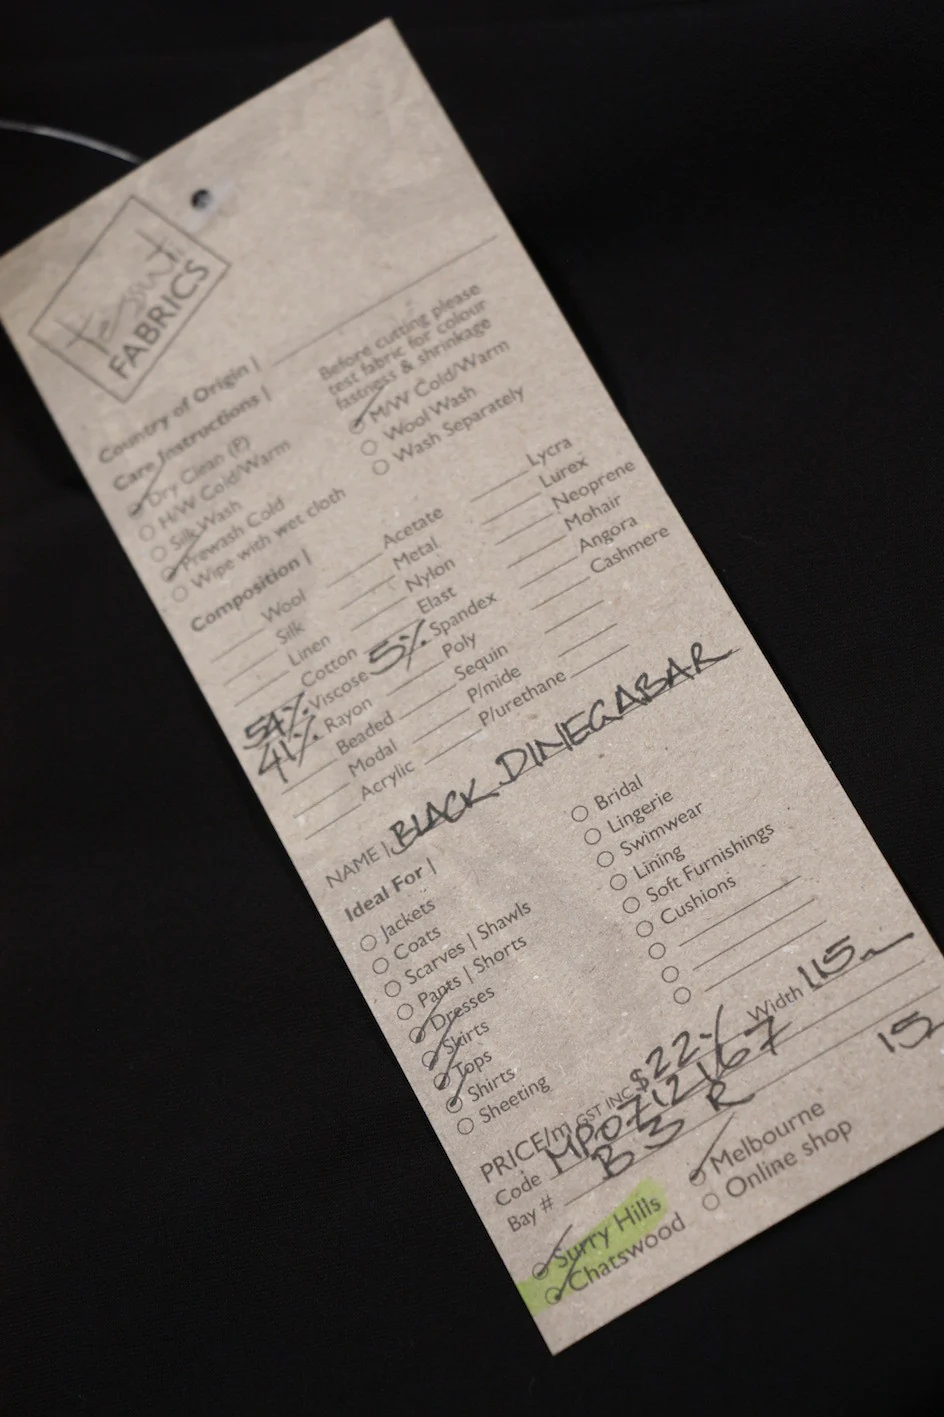 tessuti
FABRICS
Country of Origin |
Care Instructions |
Before cutting please
test fabric for colour
fastness & shrinkage
Dry Clean (P)
H/W Cold/Warm
Silk Wash
Prewash Cold
Wipe with wet cloth
M/W Cold/Warm
Wool Wash
Wash Separately
Composition |
Wool
Silk
Linen
Cotton
54% Viscose
41% Rayon
Beaded
Modal
Acrylic
Acetate
Metal
Nylon
Elast
5% Spandex
Poly
Sequin
P/mide
P/urethane
Lycra
Lurex
Neoprene
Mohair
Angora
Cashmere
NAME | BLACK DINEGABAR
Ideal For |
Jackets
Coats
Scarves | Shawls
Pants | Shorts
Dresses
Skirts
Tops
Shirts
Sheeting
Bridal
Lingerie
Swimwear
Lining
Soft Furnishings
Cushions
PRICE/m GST INC $22.- Width 115
Code MP0712167
Bay # B3R 15
Surry Hills
Chatswood
Melbourne
Online shop